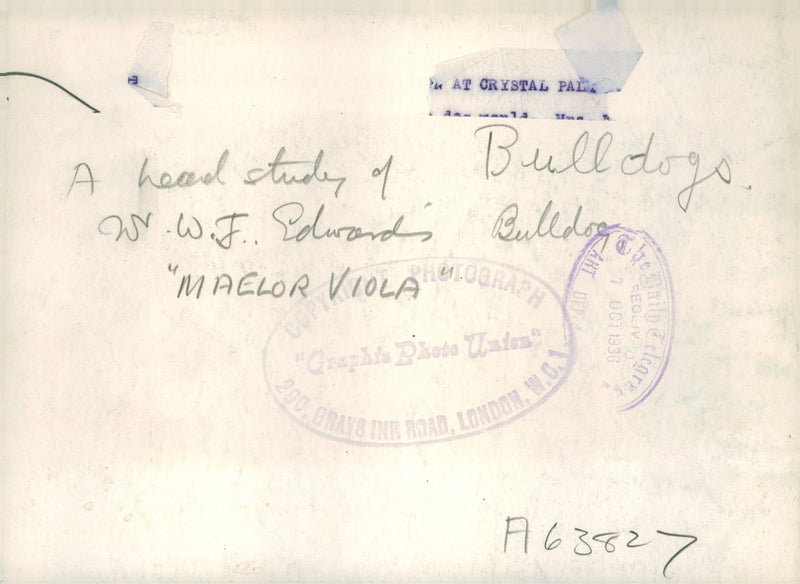 AT CRYSTAL PAL
Bulldogs.
A head study of
Mr W.J. Edwards Bulldog
"MAELOR VIOLA"
COPYRIGHT PHOTOGRAPH
"Graphic Photo Union"
200, GRAYS INN ROAD, LONDON, W.C.1
The Daily Telegraph
RECEIVED
7 OCT 1936
ART DEPT
A63827